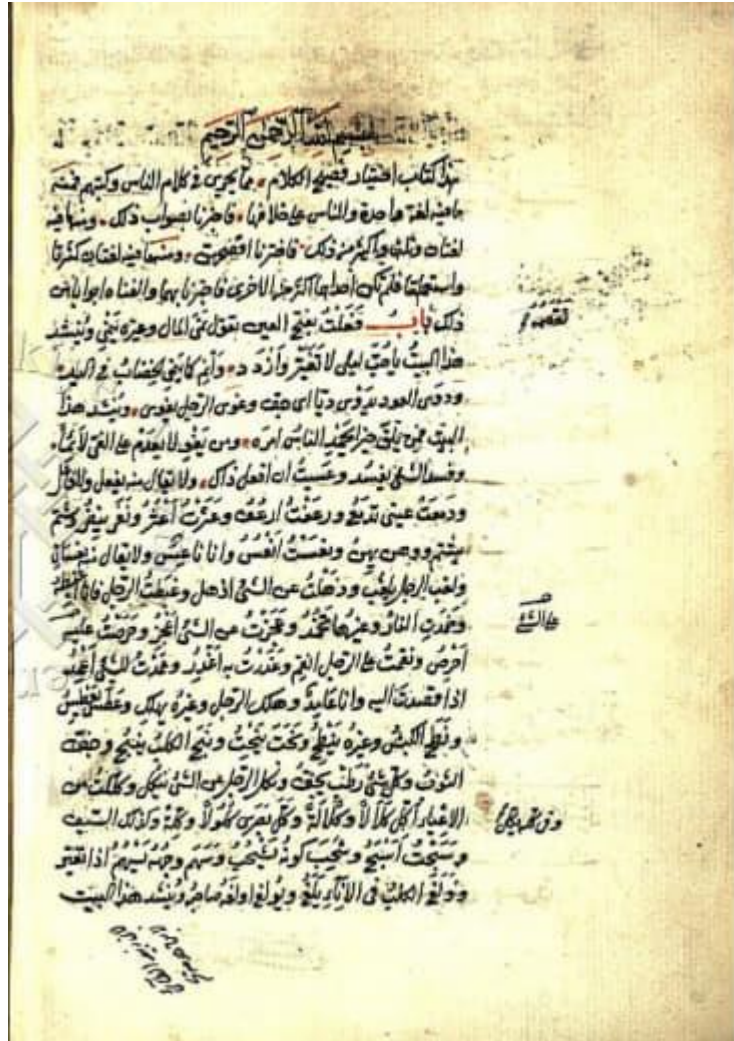 بسم الله الرحمن الرحيم
هذا كتاب اختيار فصيح الكلام مما يجرى فى كلام الناس وكتبهم فمنه
ما فيه لغة واحدة والناس على خلافها فاخبرنا بصواب ذلك ومنها فيه
لغتان وثلث واكثر من ذلك فاخترنا افصحهن ومنها فيه لغتان كثرتا
واستعملتا فلم تكن احداهما اكثر من الاخرى فاخبرنا بهما والفناه ابوابا من
ذلك باب فَعَلتُ بفتح العين تقول نمى المال وغيره ينمى وينشد
هذا البيت يا حب ليلى لا تغير وازدد وانم كما ينمى الخضاب فى اليد
وذوى العود يذوى ذيا اى جف وغوى الرجل يغوى وينشد هذا
البيت فمن يلق خيرا يحمد الناس امره ومن يغو لا يعدم على الغى لائما
وفسد الشئ يفسد وعسيت ان افعل ذاك ولا يقال منه يفعل ولا فاعل
ودمعت عينى تدمع ورعفت ارعف وعثرت اعثر ونفر ينفر وشتم
يشتم ووهن يهن ونعست انعس وانا ناعس ولا يقال نعسان
ولغب الرجل يلغب وذهلت عن الشئ اذهل وغبطت الرجل فانا اغبطه
وخمدت النار وغيرها تخمد وعجزت عن الشئ اعجز وحرصت عليه
احرص ونقمت على الرجل انقم وغدرت به اغدر وعمدت للشئ اعمد
اذا قصدت اليه وانا عامد وهلك الرجل وغيره يهلك وعطس يعطس
ونطح الكبش وغيره ينطح ونحت ينحت ونبح الكلب ينبح وجف
الثوب وكل شئ رطب يجف ونكل الرجل عن الشئ ينكل وكللت من
الاعياء اكل كلالا وكلالة وكل بصرى كلولا وكلة وكذلك السيف
وسبحت اسبح وشحب لونه يشحب وسهم وجهه يسهم اذا تغير
وولغ الكلب فى الاناء يلغ ويولغ اولغه صاحبه وينشد هذا البيت
على الشئ